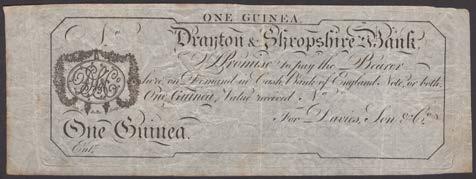 ONE GUINEA
Drayton & Shropshire Bank
I Promise to pay the Bearer
here, on Demand in Cash, Bank of England Note, or both,
One Guinea, Value received No
For Davies, Son & Co.
One Guinea.
Entd.